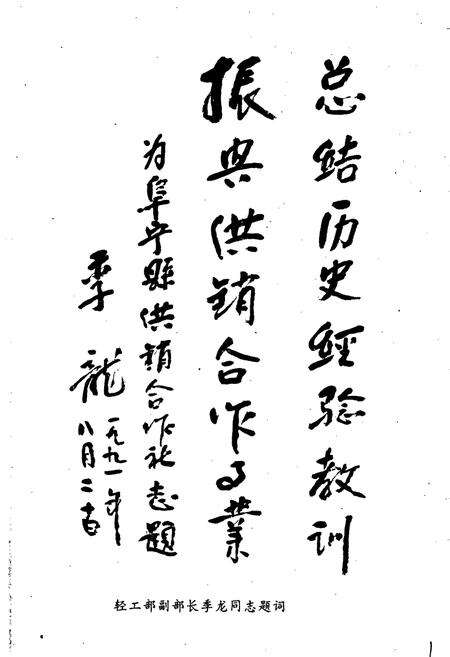 总结历史经验教训
振兴供销合作事业
为阜宁县供销合作社志题
季龙
一九九一年
八月二十日
轻工部副部长季龙同志题词